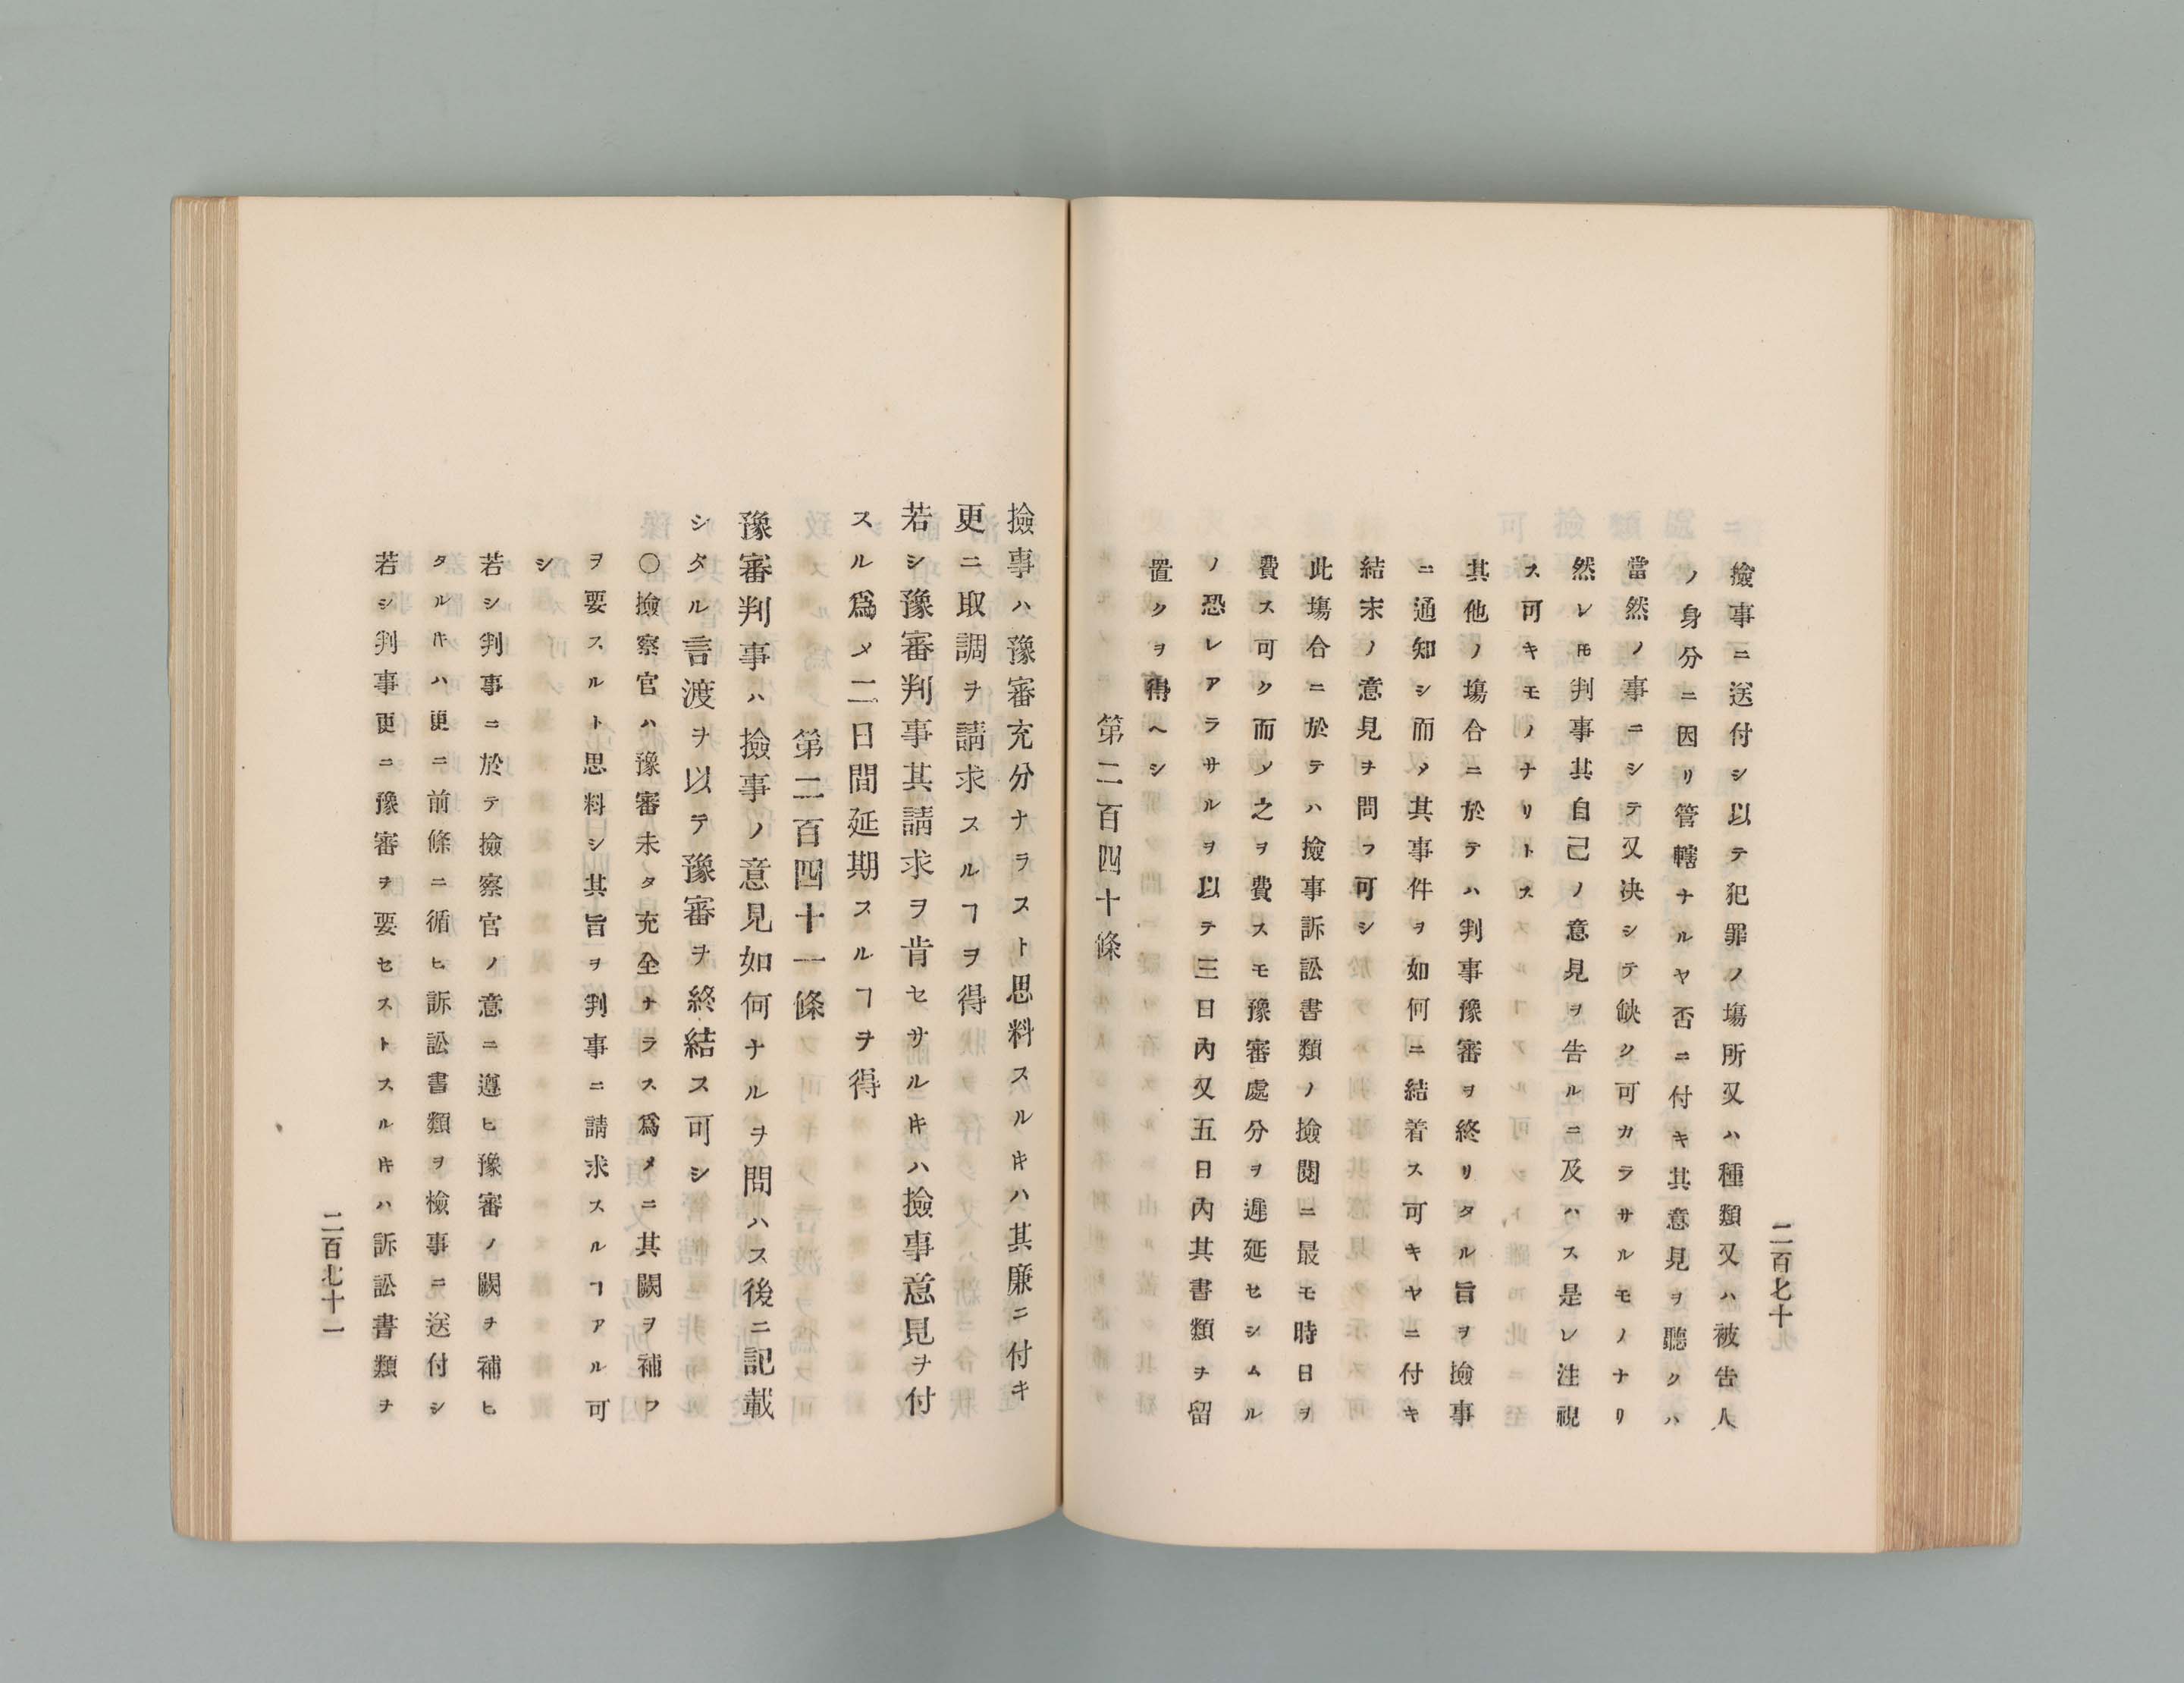 二百七十
撿事ニ送付シ以テ犯罪ノ塲所又ハ種類又ハ被告人
ノ身分ニ因リ管轄ナルヤ否ニ付キ其意見ヲ聽クハ
當然ノ事ニシテ又决シテ缺ク可カラサルモノナリ
然レ𪜈判事其自己ノ意見ヲ告ルニ及ハス是レ注視
ス可キモノナリトス
其他ノ塲合ニ於テハ判事豫審ヲ終リタル旨ヲ撿事
ニ通知シ而〆其事件ヲ如何ニ結着ス可キヤニ付キ
結末ノ意見ヲ問フ可シ
此塲合ニ於テハ撿事訴訟書類ノ撿閱ニ最モ時日ヲ
費ス可ク而〆之ヲ費スモ豫審處分ヲ遲延セシムル
ノ恐レアラサルヲ以テ三日內又五日內其書類ヲ留
置クヲ得ヘシ
第二百四十條
撿事ハ豫審充分ナラスト思料スルキハ其廉ニ付キ
更ニ取調ヲ請求スルヿヲ得
若シ豫審判事其請求ヲ肯セサルキハ撿事意見ヲ付
スル爲メ二日間延期スルヿヲ得
第二百四十一條
豫審判事ハ撿事ノ意見如何ナルヲ問ハス後ニ記載
シタル言渡ヲ以テ豫審ヲ終結ス可シ
〇撿察官ハ豫審未タ充全ナラス爲メニ其闕ヲ補フ
ヲ要スルト思料シ其旨ヲ判事ニ請求スルヿアル可
シ
若シ判事ニ於テ撿察官ノ意ニ遵ヒ豫審ノ闕ヲ補ヒ
タルキハ更ニ前條ニ循ヒ訴訟書類ヲ檢事ニ送付シ
若シ判事更ニ豫審ヲ要セストスルキハ訴訟書類ヲ
二百七十一